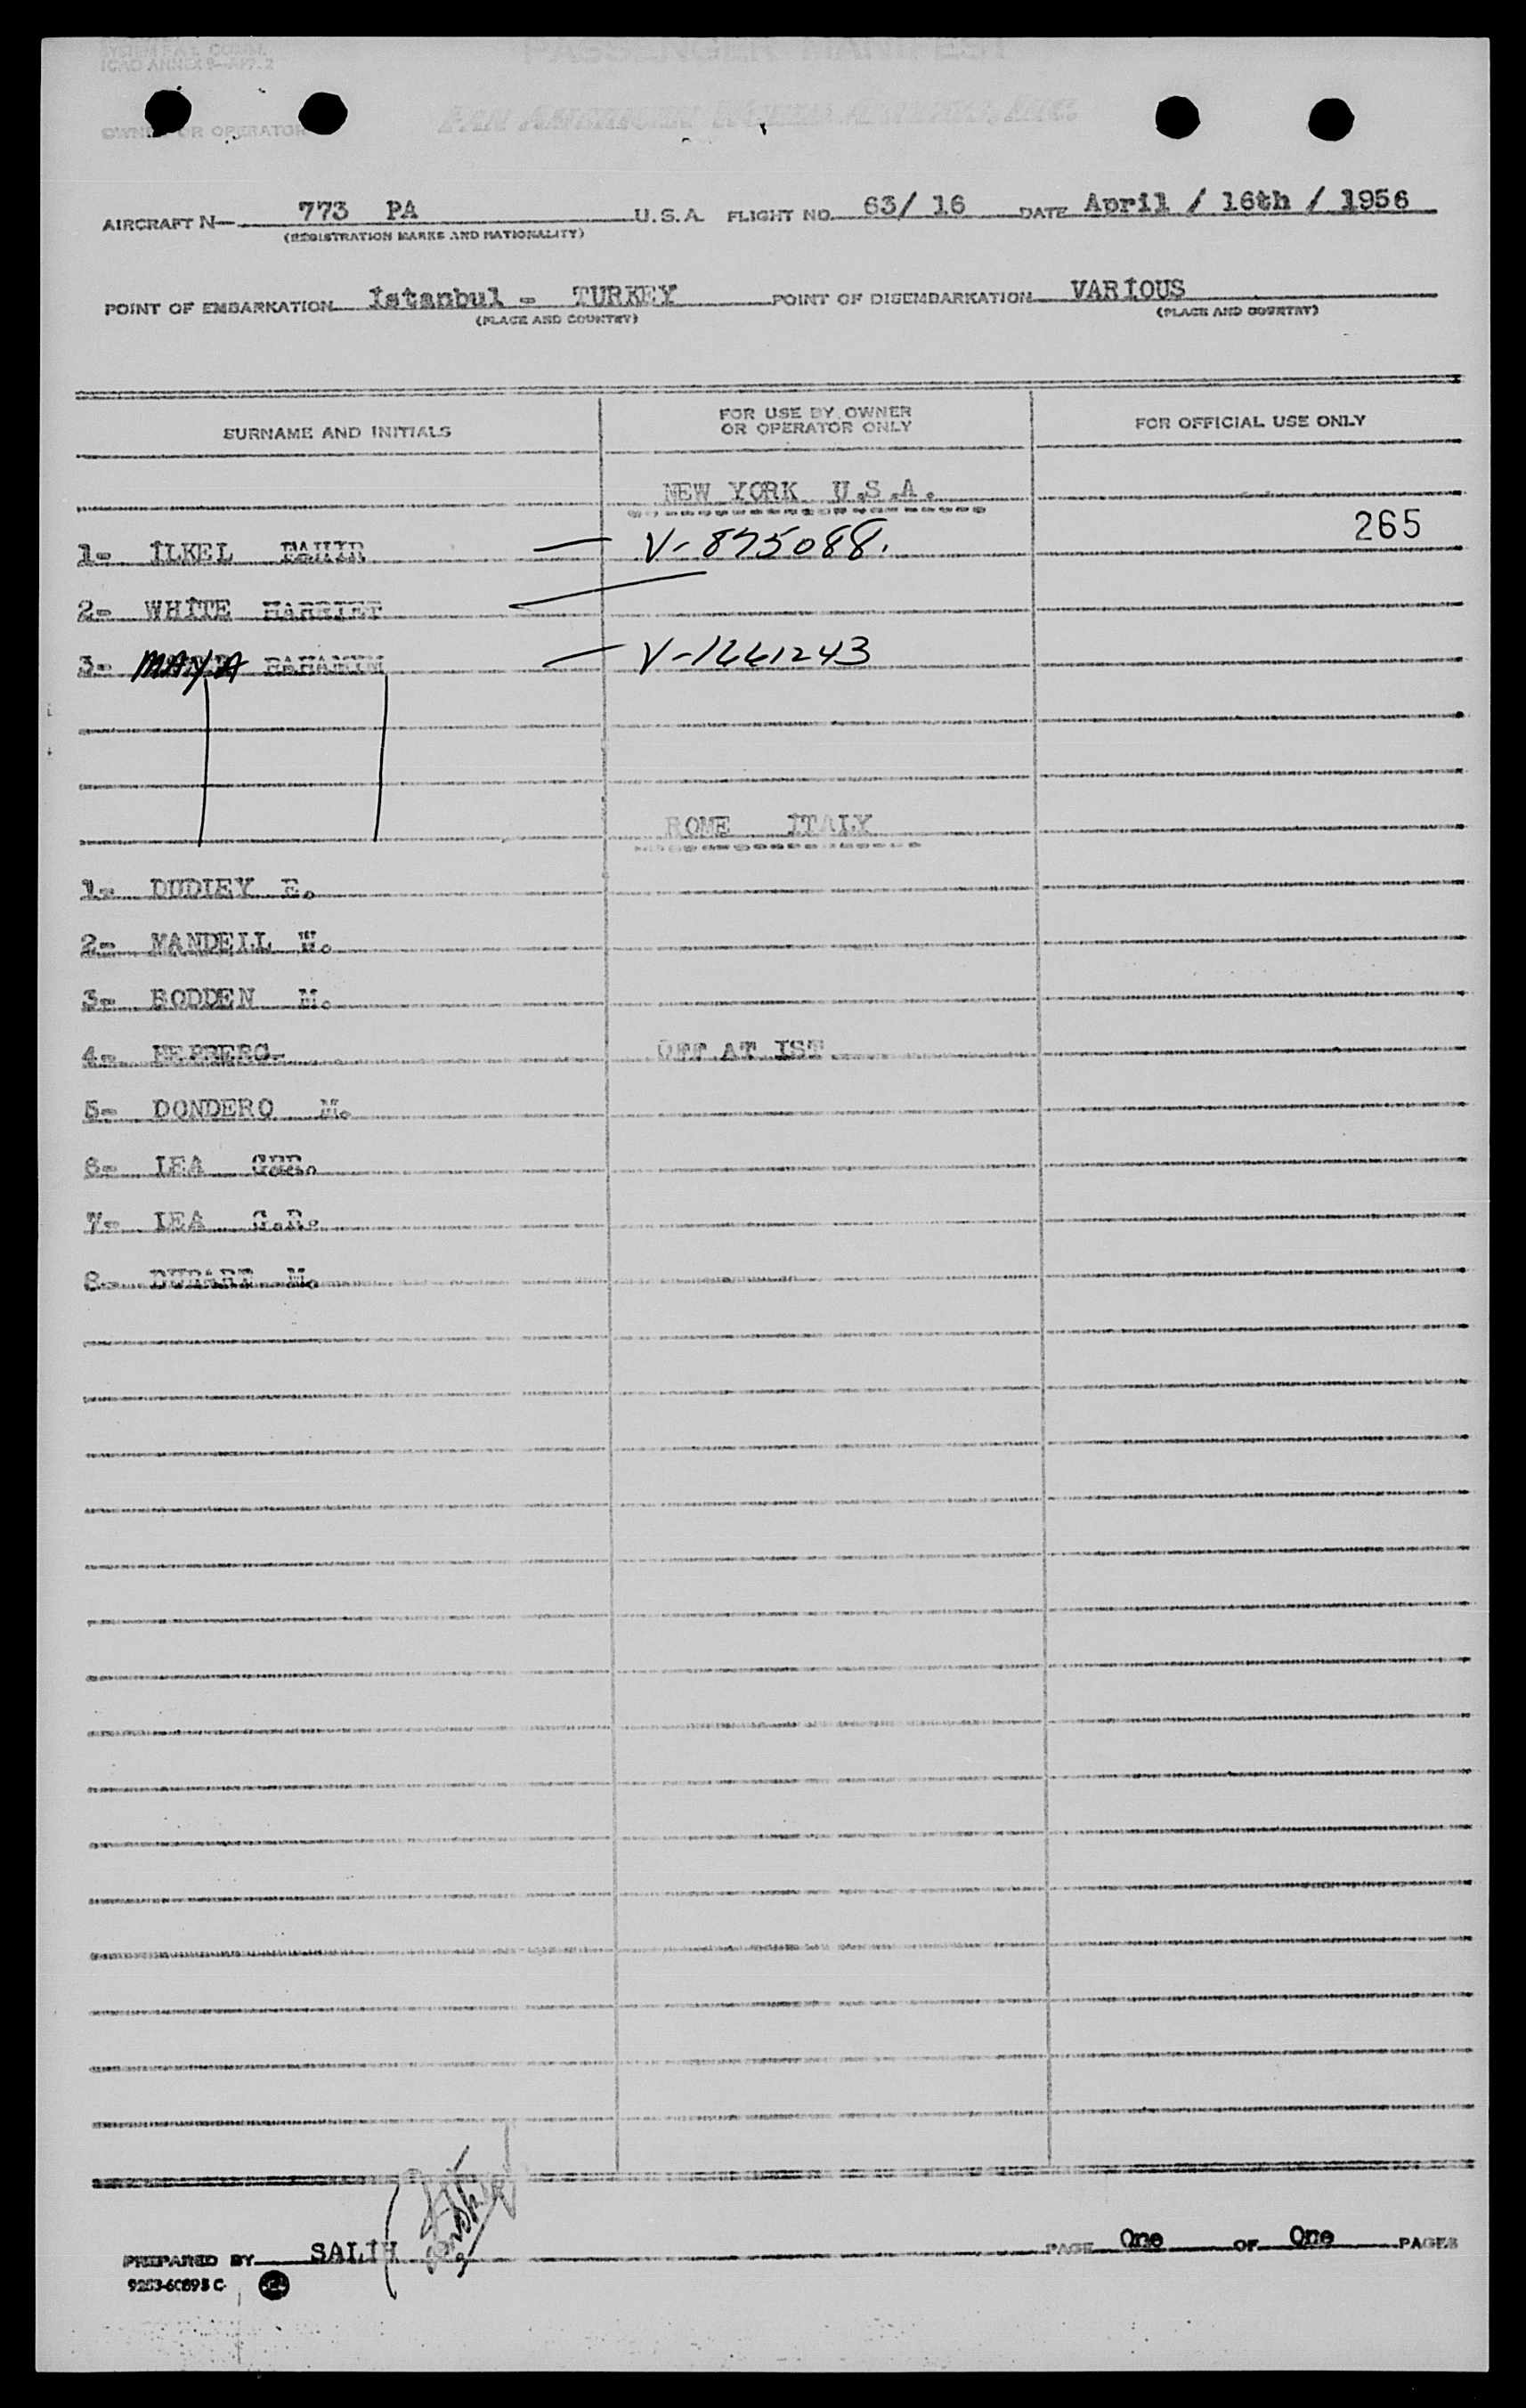 SYSTEM F.A.L. COMM.
ICAO ANNEX 9—APP. 2
PASSENGER MANIFEST
OWNER OR OPERATOR
PAN AMERICAN WORLD AIRWAYS, INC.
AIRCRAFT N— 773 PA U.S.A. FLIGHT NO. 63/ 16 DATE April / 16th / 1956
(REGISTRATION MARKS AND NATIONALITY)
POINT OF EMBARKATION İstanbul - TURKEY POINT OF DISEMBARKATION VARİOUS
(PLACE AND COUNTRY) (PLACE AND COUNTRY)
SURNAME AND INITIALS FOR USE BY OWNER OR OPERATOR ONLY FOR OFFICIAL USE ONLY
NEW YORK U.S.A.
265
1- İLKEL V-875088.
2- WHİTE HARRIET
3- MAYA RAHAMIM V-1661243
ROME İTALY
1- DUDLEY E.
2- MANDELL W.
3- RODDEN M.
4- OFF AT IST
5- DONDERO M.
6- LEA
7- LEA G.R.
8- M.
PREPARED BY SALİH PAGE One OF One PAGES